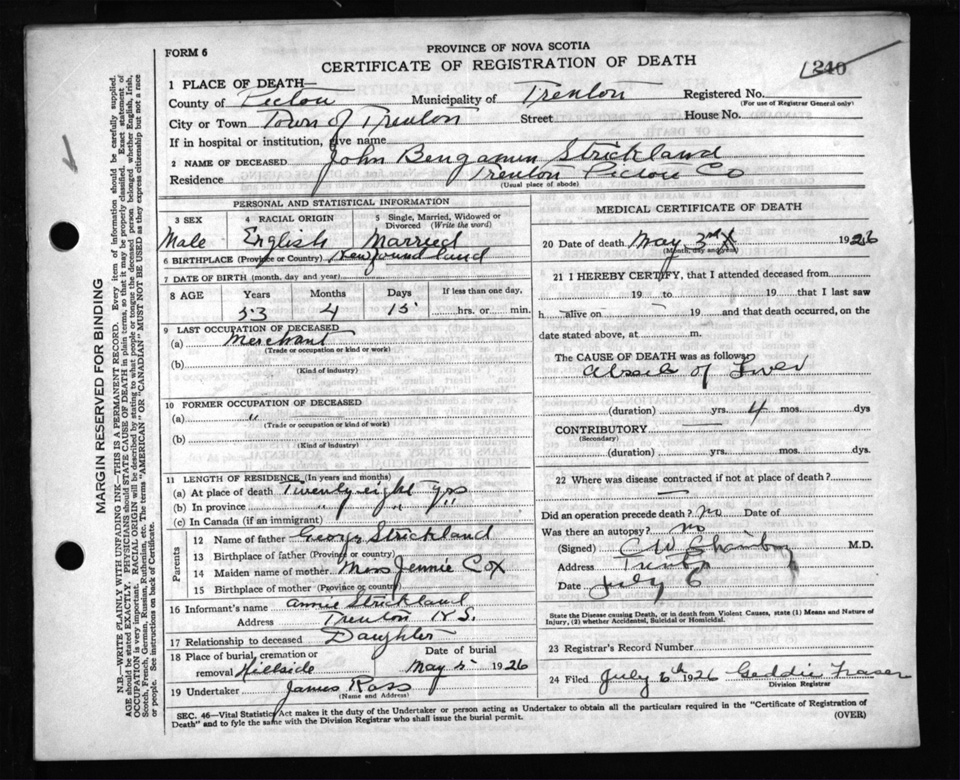 FORM 6
PROVINCE OF NOVA SCOTIA
CERTIFICATE OF REGISTRATION OF DEATH
240
1 PLACE OF DEATH—
County of Pictou Municipality of Trenton Registered No.
(For use of Registrar General only)
City or Town Town of Trenton Street House No.
If in hospital or institution, give name
2 NAME OF DECEASED John Bengamin Strickland
Residence Trenton Pictou Co
(Usual place of abode)
PERSONAL AND STATISTICAL INFORMATION
3 SEX 4 RACIAL ORIGIN 5 Single, Married, Widowed or Divorced (Write the word)
Male English Married
6 BIRTHPLACE (Province or Country) Newfoundland
7 DATE OF BIRTH (month, day and year)
8 AGE Years Months Days If less than one day,
53 4 15 hrs. or min.
9 LAST OCCUPATION OF DECEASED
(a) Merchant
(Trade or occupation or kind or work)
(b)
(Kind of industry)
10 FORMER OCCUPATION OF DECEASED
(a) "
(Trade or occupation or kind of work)
(b)
(Kind of industry)
11 LENGTH OF RESIDENCE (In years and months)
(a) At place of death Twenty eight yrs
(b) In province " " "
(c) In Canada (if an immigrant)
Parents
12 Name of father George Strickland
13 Birthplace of father (Province or country)
14 Maiden name of mother Miss Jennie Cox
15 Birthplace of mother (Province or country)
16 Informant's name Annie Strickland
Address Trenton N.S.
17 Relationship to deceased Daughter
18 Place of burial, cremation or removal Hillside Date of burial May 5 1926
19 Undertaker James Ross
(Name and Address)
MEDICAL CERTIFICATE OF DEATH
20 Date of death May 3rd 1926
(Month, day and year)
21 I HEREBY CERTIFY, that I attended deceased from
19 to 19 that I last saw
h alive on 19 and that death occurred, on
date stated above, at m.
The CAUSE OF DEATH was as follows
of Liver
(duration) yrs. 4 mos. dys
CONTRIBUTORY
(Secondary)
(duration) yrs. mos. dys.
22 Where was disease contracted if not at place of death?
Did an operation precede death? no Date of
Was there an autopsy? no
(Signed) M.D.
Address Trenton
Date July 6
State the Disease causing Death, or in death from Violent Causes, state (1) Means and Nature of Injury, (2) whether Accidental, Suicidal or Homicidal.
23 Registrar's Record Number
24 Filed July 6th 1926 Geddie Fraser
Division Registrar
SEC. 46—Vital Statistics Act makes it the duty of the Undertaker or person acting as Undertaker to obtain all the particulars required in the "Certificate of Registration of
Death" and to fyle the same with the Division Registrar who shall issue the burial permit.
(OVER)
MARGIN RESERVED FOR BINDING
N.B.—WRITE PLAINLY WITH UNFADING INK—THIS IS A PERMANENT RECORD. Every item of information should be carefully supplied.
AGE should be stated EXACTLY. PHYSICIANS should STATE CAUSE OF DEATH in plain terms, so that it may be properly classified. Exact statement of
OCCUPATION is very important. RACIAL ORIGIN will be described by stating to what people or tongue the deceased person belonged whether English, Irish,
Scotch, French, German, Russian, Ruthenian, etc. The terms "AMERICAN" OR "CANADIAN" MUST NOT BE USED as they express citizenship but not a race
or people. See instructions on back of Certificate.